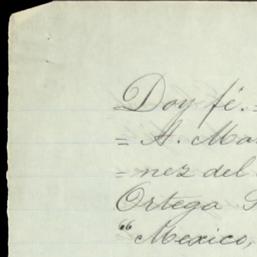 Doy fé. =
= A. Ma
= nez del
Ortega
"Mexico,